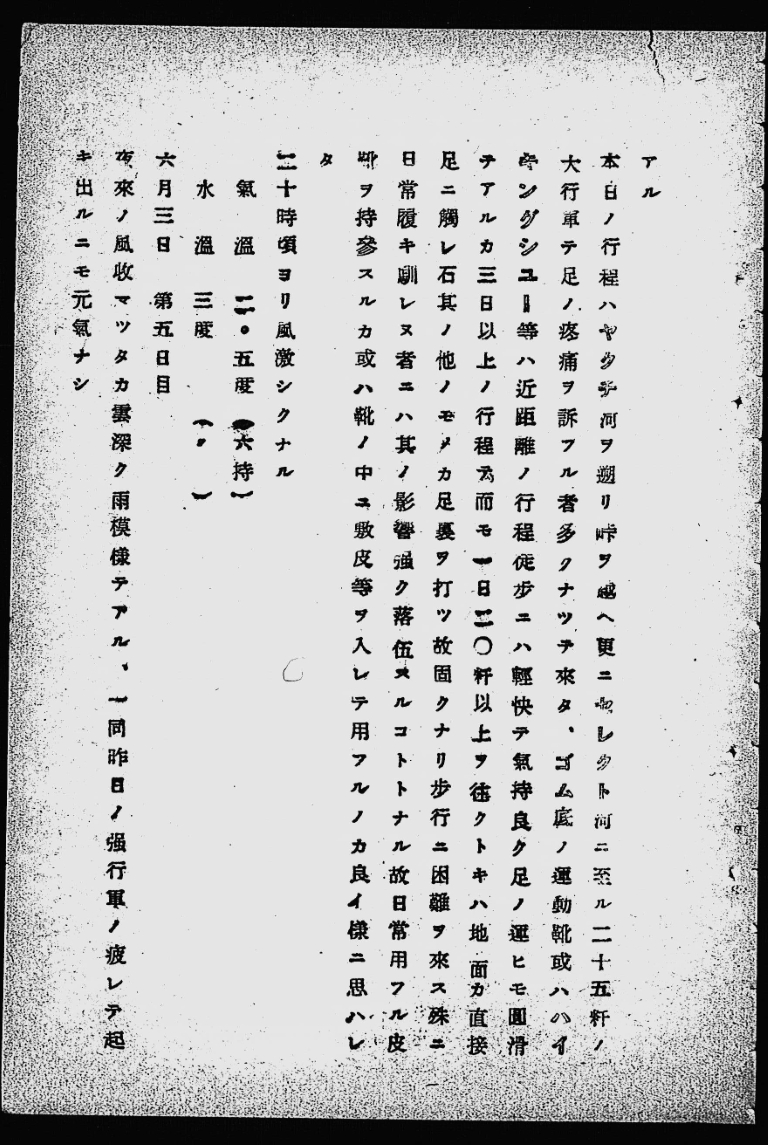 アル
本日ノ行程ハヤクチ河ヲ遡リ峠ヲ越ヘ更ニセレクト河ニ至ル二十五粁ノ
大行軍テ足ノ疼痛ヲ訴フル者多クナツテ來タ、ゴム底ノ運動靴或ハハイ
キングシユー等ハ近距離ノ行程徒步ニハ輕快テ氣持良ク足ノ運ヒモ圓滑
テアルカ三日以上ノ行程テ而モ一日二〇粁以上ヲ往クトキハ地面カ直接
足ニ觸レ石其ノ他ノモノカ足裏ヲ打ツ故固クナリ步行ニ困難ヲ來ス殊ニ
日常履キ馴レヌ者ニハ其ノ影響强ク落伍スルコトトナル故日常用フル皮
靴ヲ持參スルカ或ハ靴ノ中ニ敷皮等ヲ入レテ用フルノカ良イ樣ニ思ハレ
タ
二十時頃ヨリ風激シクナル
氣溫 二・五度(六持)
水溫 三度 (〃)
六月三日 第五日目
夜來ノ風收マツタカ雲深ク雨模樣テアル、一同昨日ノ强行軍ノ疲レテ起
キ出ルニモ元氣ナシ